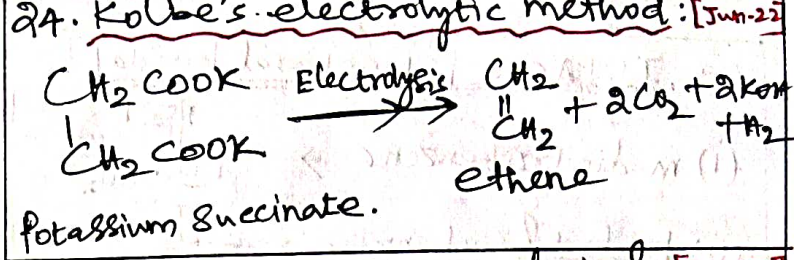 24. Kolbe's electrolytic method: [Jun-22]
CH2 COOK Electrolysis CH2
| → || + 2CO2 + 2KOH
CH2 COOK CH2 + H2
ethene
Potassium Succinate.